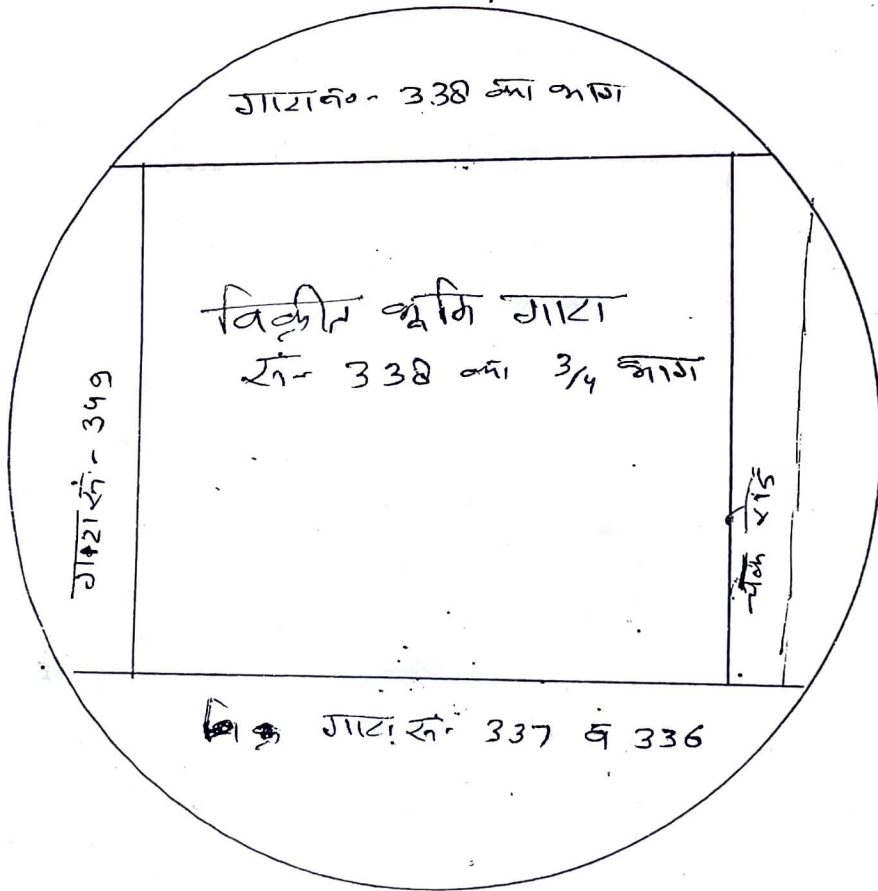 गाटा सं०- 338 का भाग
विक्रीत भूमि गाटा
सं- 338 का 3/4 भाग
गाटा सं- 349
चक रोड
गाटा सं- 337 व 336